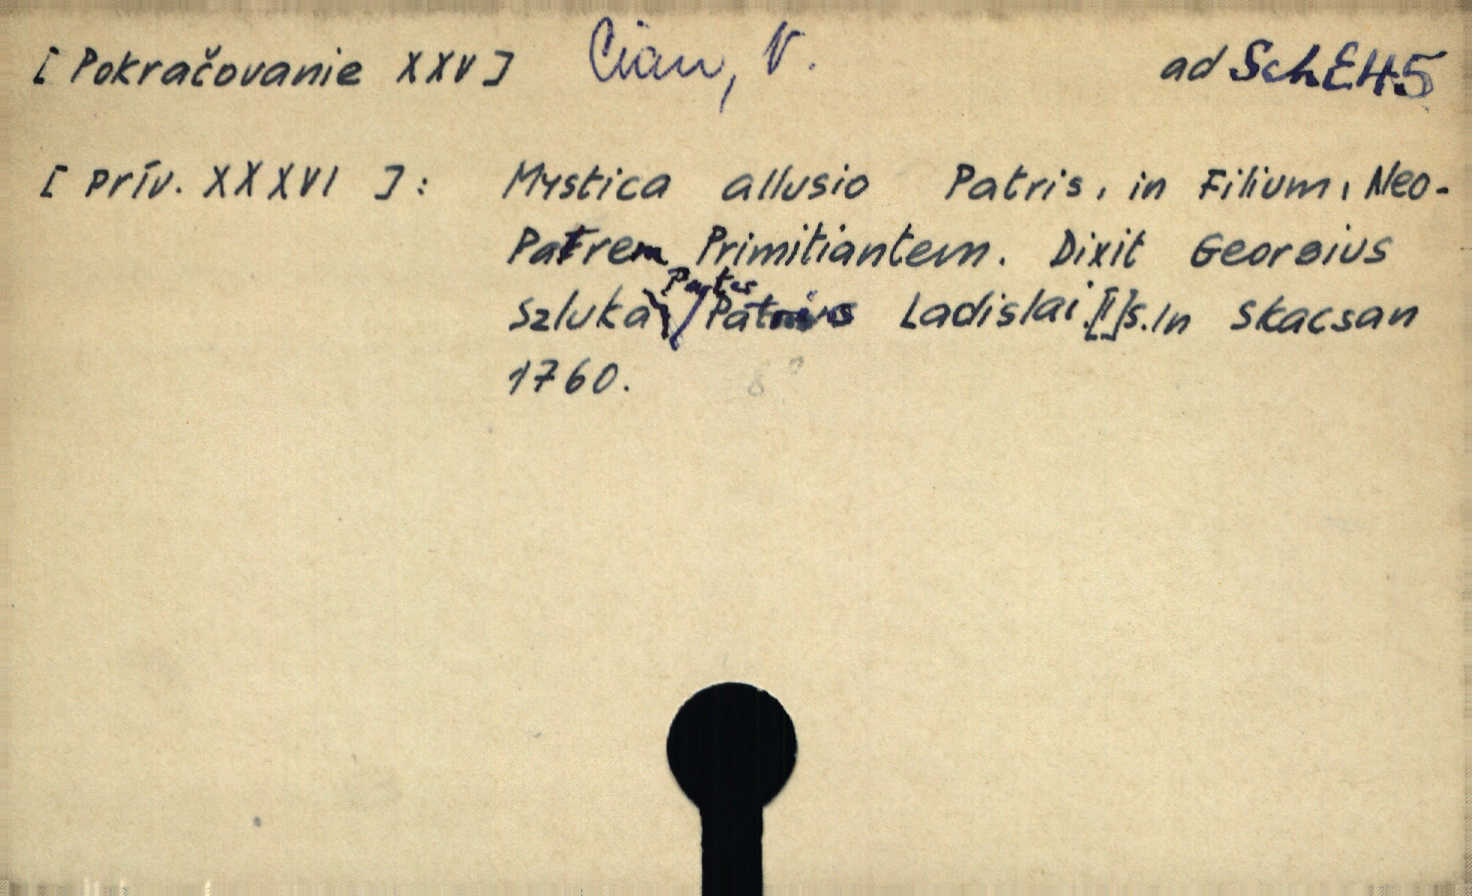 [Pokračovanie XXV] Cian, V. ad SchE45
[Prív. XXXVI]: Mystica allusio Patris, in Filium, Neo-
Patrem Primitiantem. Dixit Georgius
Szluka Ladislai [!]s. In Skacsan
1760. 8°